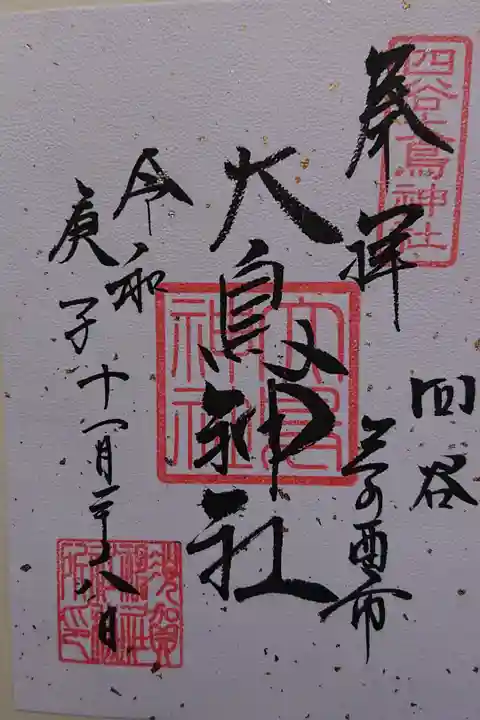 四谷大鳥神社
奉拝
四谷
三の酉市
大鳥神社
大鳥
神社
令和
庚子十一月二十六日
須賀
神社